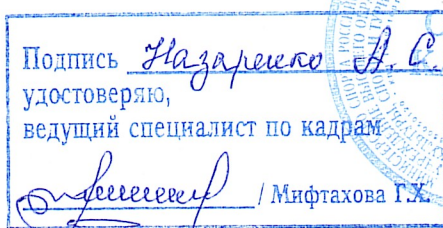 Подпись Назаренко А. С.
удостоверяю,
ведущий специалист по кадрам
/ Мифтахова Г.Х.